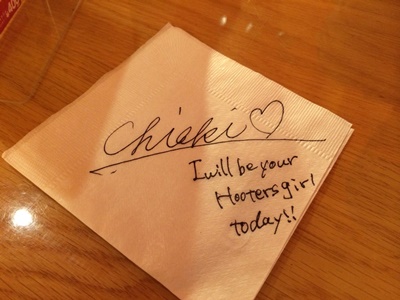 Chieki♡
I will be your
Hooters girl
today!!